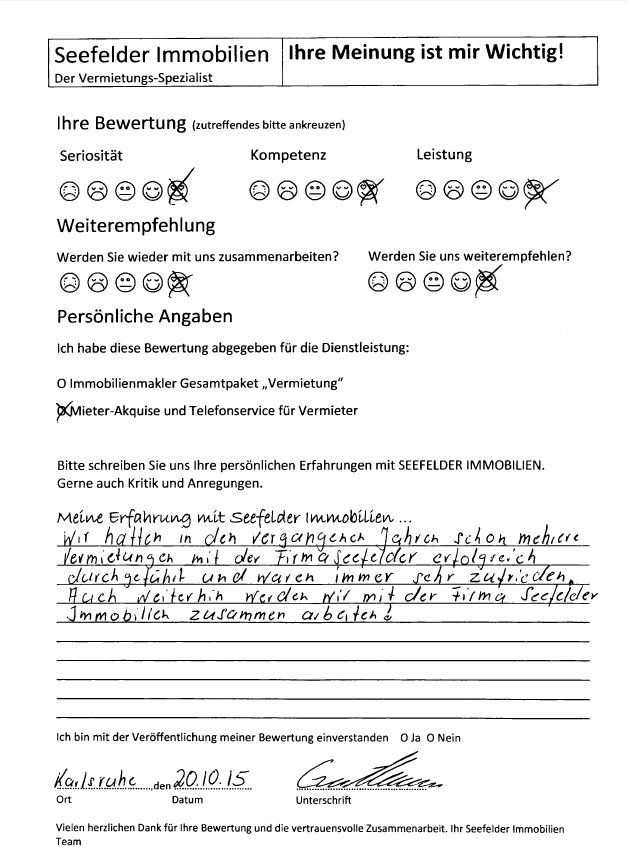 Seefelder Immobilien
Der Vermietungs-Spezialist
Ihre Meinung ist mir Wichtig!
Ihre Bewertung (zutreffendes bitte ankreuzen)
Seriosität Kompetenz Leistung
Weiterempfehlung
Werden Sie wieder mit uns zusammenarbeiten? Werden Sie uns weiterempfehlen?
Persönliche Angaben
Ich habe diese Bewertung abgegeben für die Dienstleistung:
O Immobilienmakler Gesamtpaket „Vermietung“
O Mieter-Akquise und Telefonservice für Vermieter
Bitte schreiben Sie uns Ihre persönlichen Erfahrungen mit SEEFELDER IMMOBILIEN.
Gerne auch Kritik und Anregungen.
Meine Erfahrung mit Seefelder Immobilien ...
Wir hatten in den vergangenen Jahren schon mehrere
Vermietungen mit der Firma Seefelder erfolgreich
durchgeführt und waren immer sehr zufrieden.
Auch weiterhin werden wir mit der Firma Seefelder
Immobilien zusammen arbeiten!
Ich bin mit der Veröffentlichung meiner Bewertung einverstanden O Ja O Nein
Karlsruhe, den 20.10.15
Ort Datum Unterschrift
Vielen herzlichen Dank für Ihre Bewertung und die vertrauensvolle Zusammenarbeit. Ihr Seefelder Immobilien
Team